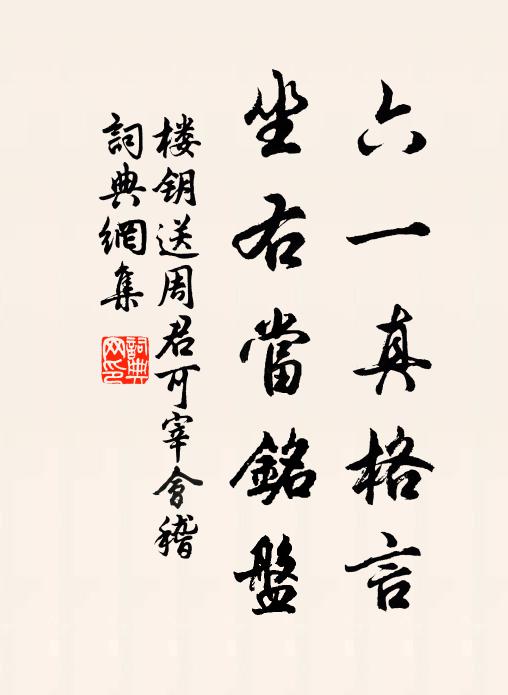 六一真格言
坐右當銘盤
楼钥送周君可宰會稽
詞典網集
詞典網印